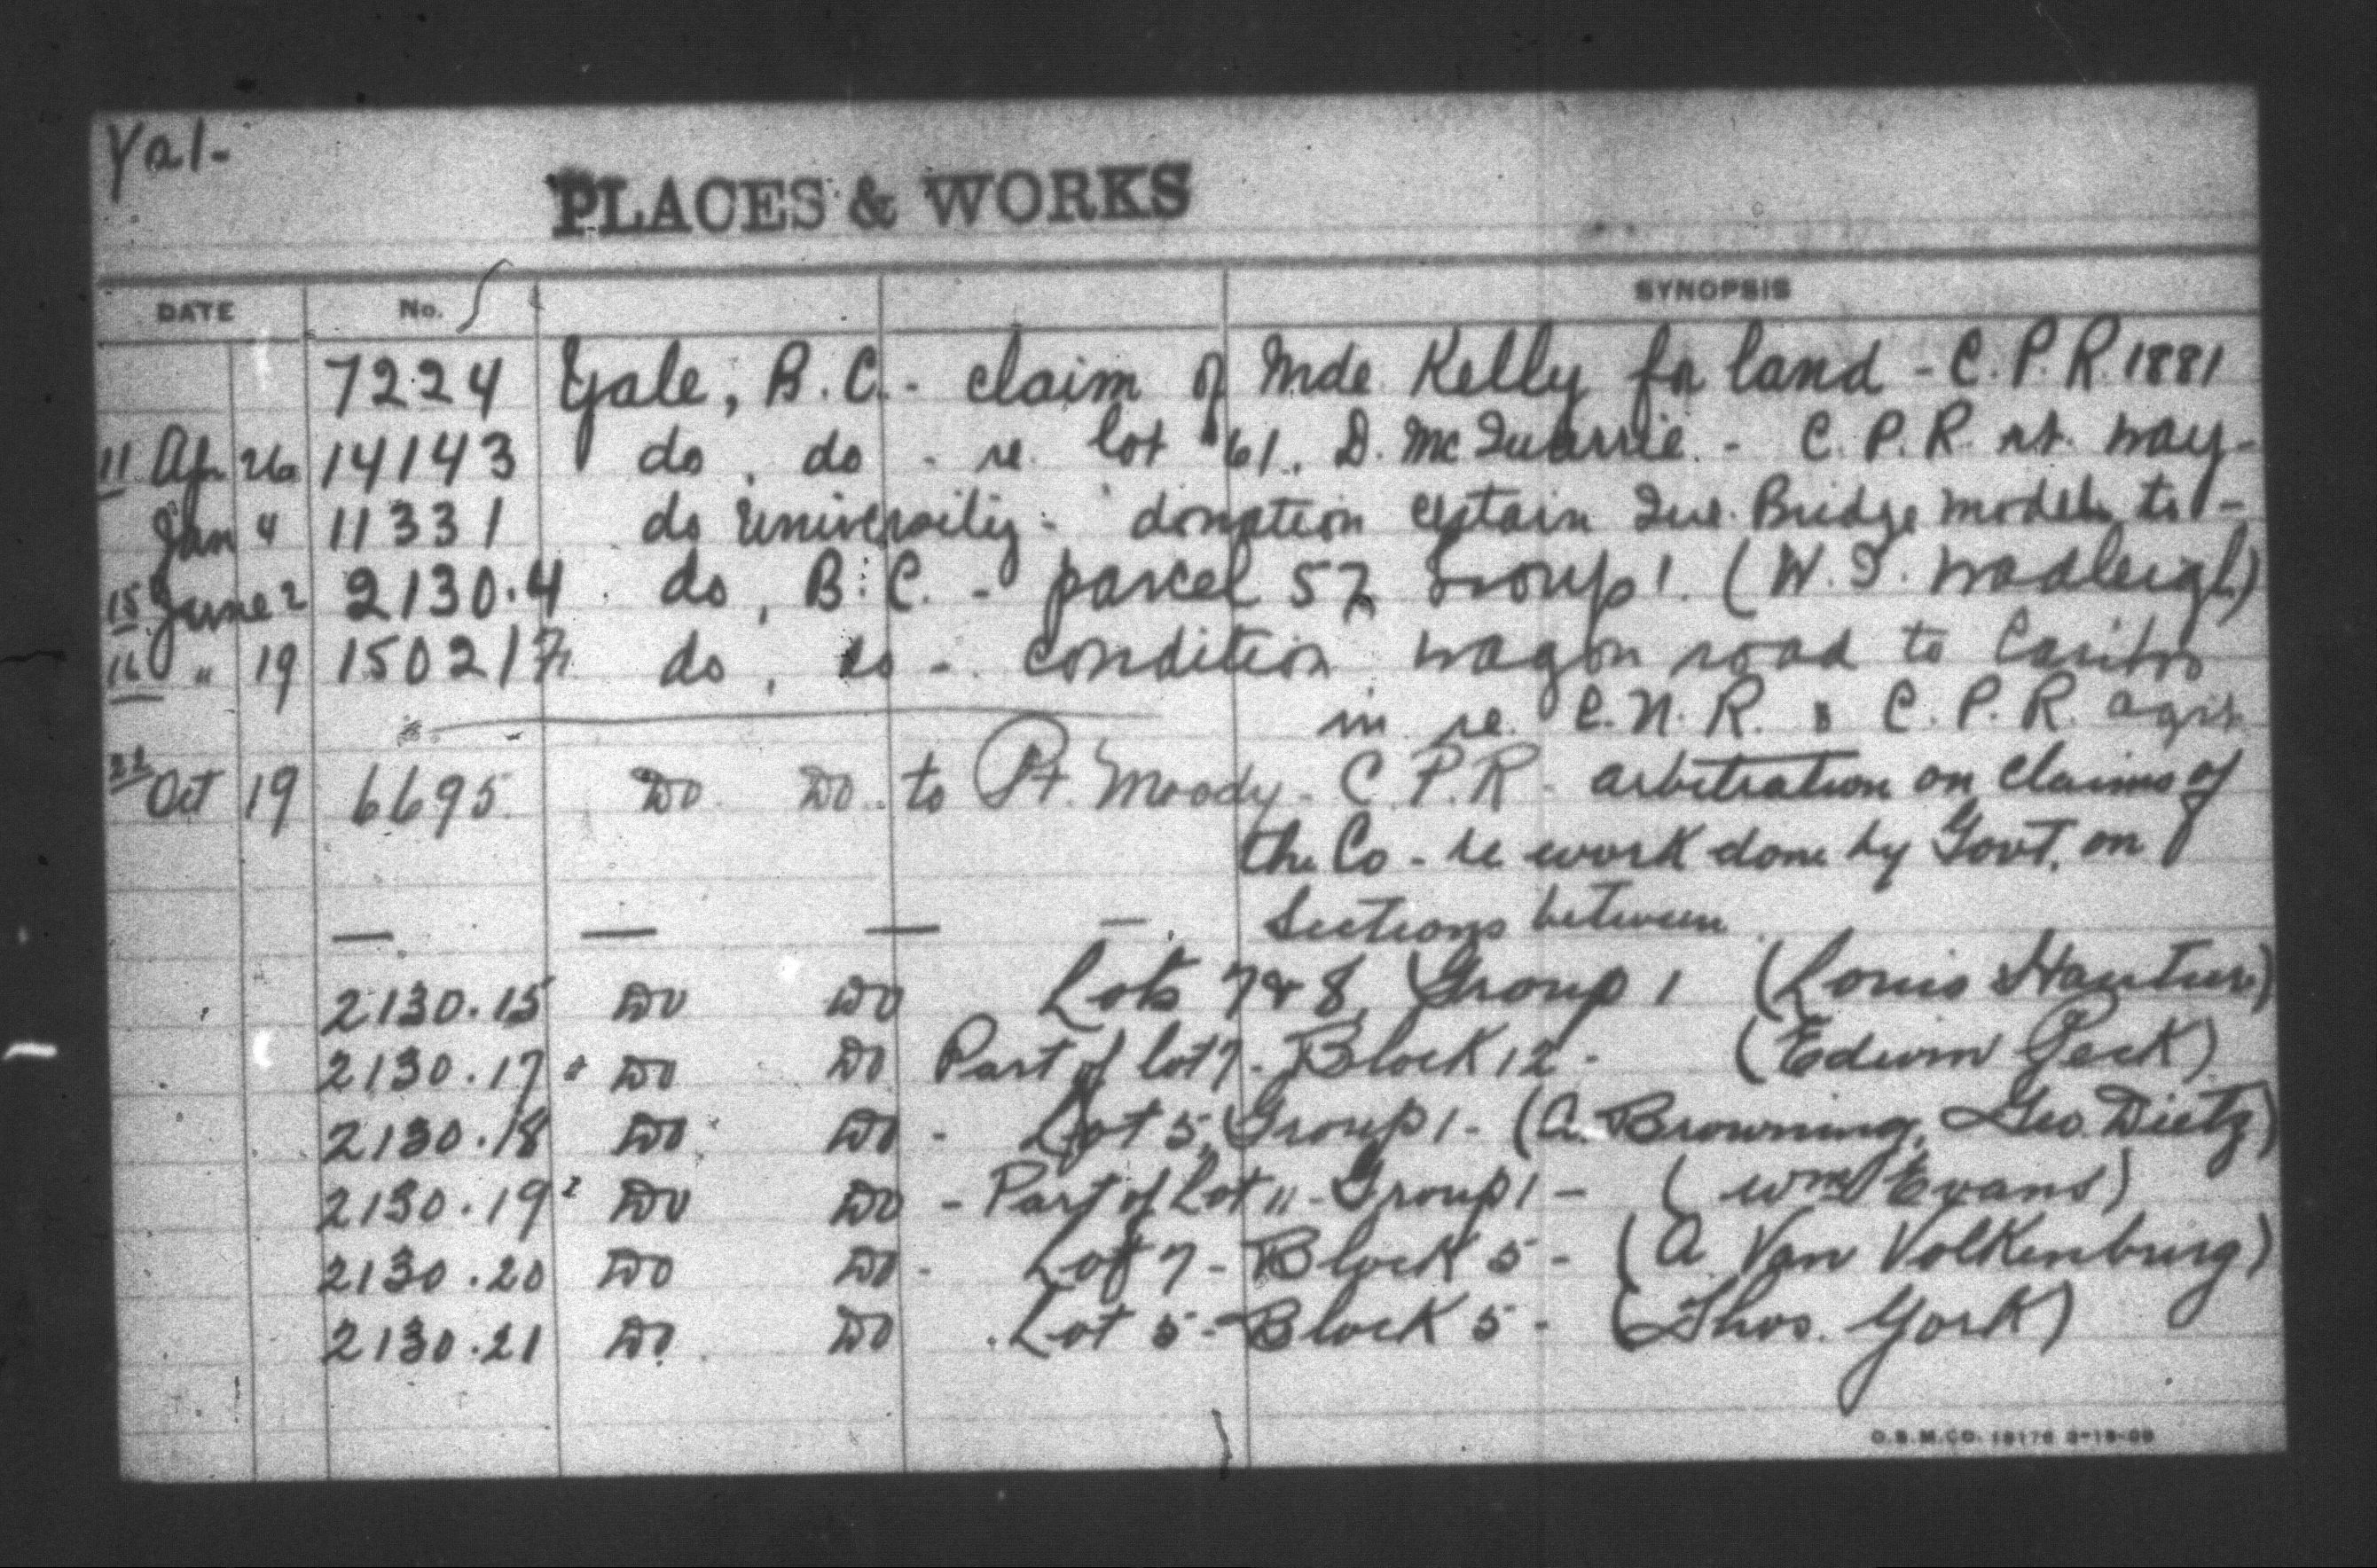 Yal-
PLACES & WORKS
DATE No. SYNOPSIS
7224 Yale, B.C. - claim of Mde Kelly for land - C.P.R. 1881
11 Apr 26 14143 do, do - re lot 61, D. McQuarrie - C.P.R. rt. way-
Jan 4 11331 do University - donation certain Que. Bridge models to -
15 June 2 2130.4 do, B.C. - parcel 57 Group 1. (W. Wadleigh)
16 " 19 15021 do, do - condition wagon road to Cariboo
in re C.N.R. & C.P.R. agrt
22 Oct 19 6695 Do Do to Pt. Moody - C.P.R - arbitration on claims of
the Co - re work done by Govt. on
— — — — Sections between
2130.15 Do Do Lots 7 & 8, Group 1 (Louis Hautier)
2130.17 Do Do Part of lot 7 - Block 12 - (Edwin Peck)
2130.18 Do Do - Lot 5, Group 1 - (A. Browning, Geo. Dietz)
2130.19 Do Do - Part of Lot 11 - Group 1 - (Wm Evans)
2130.20 Do Do - Lot 7 - Block 5 - (A. Van Volkenburg)
2130.21 Do Do . Lot 5 - Block 5 - (Thos. York)
O.S.M.CO.